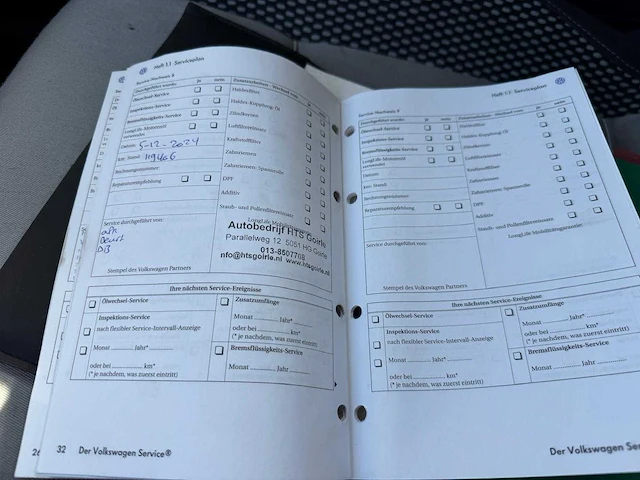 Heft 1.1 Serviceplan
Service-Nachweis 8
Durchgeführt wurde: ja nein
Ölwechsel-Service
Inspektions-Service
Bremsflüssigkeits-Service
LongLife-Motorenöl verwendet
Datum: 5-12-2024
km-Stand:
Rechnungsnummer:
Reparaturempfehlung
Haldexfilter
Haldex-Kupplung-Öl
Zündkerzen
Luftfiltereinsatz
Kraftstofffilter
Zahnriemen
Zahnriemen-Spannrolle
DPF
Additiv
Staub- und Pollenfiltereinsatz
Service durchgeführt von:
apk
Autobedrijf HTS Goirle
Parallelweg 12 5051 HG Goirle
013-8507708
info@htsgoirle.nl www.htsgoirle.nl
Stempel des Volkswagen Partners
Ihre nächsten Service-Ereignisse
Ölwechsel-Service
Inspektions-Service
nach flexibler Service-Intervall-Anzeige
Monat ........ Jahr*........
oder bei ................ km*
(* je nachdem, was zuerst eintritt)
Zusatzumfänge
Monat ........ Jahr ............
oder bei ................ km
Bremsflüssigkeits-Service
Monat ........ Jahr ............
26
32 Der Volkswagen Service®
Heft 1.1 Serviceplan
Durchgeführt wurde: ja nein
Ölwechsel-Service
Inspektions-Service
Bremsflüssigkeits-Service
LongLife-Motorenöl verwendet
Datum:
km-Stand:
Rechnungsnummer:
Reparaturempfehlung
Haldexfilter
Haldex-Kupplung-Öl
Zündkerzen
Luftfiltereinsatz
Kraftstofffilter
Zahnriemen
Zahnriemen-Spannrolle
DPF
Additiv
Staub- und Pollenfiltereinsatz
LongLife Mobilitätsgarantie
Service durchgeführt von:
Stempel des Volkswagen Partners
Ihre nächsten Service-Ereignisse
Ölwechsel-Service
Inspektions-Service
nach flexibler Service-Intervall-Anzeige
Monat ........ Jahr*........
oder bei ................ km*
(* je nachdem, was zuerst eintritt)
Zusatzumfänge
Monat ........ Jahr ............
oder bei ................ km
Bremsflüssigkeits-Service
Monat ........ Jahr ............
Der Volkswagen